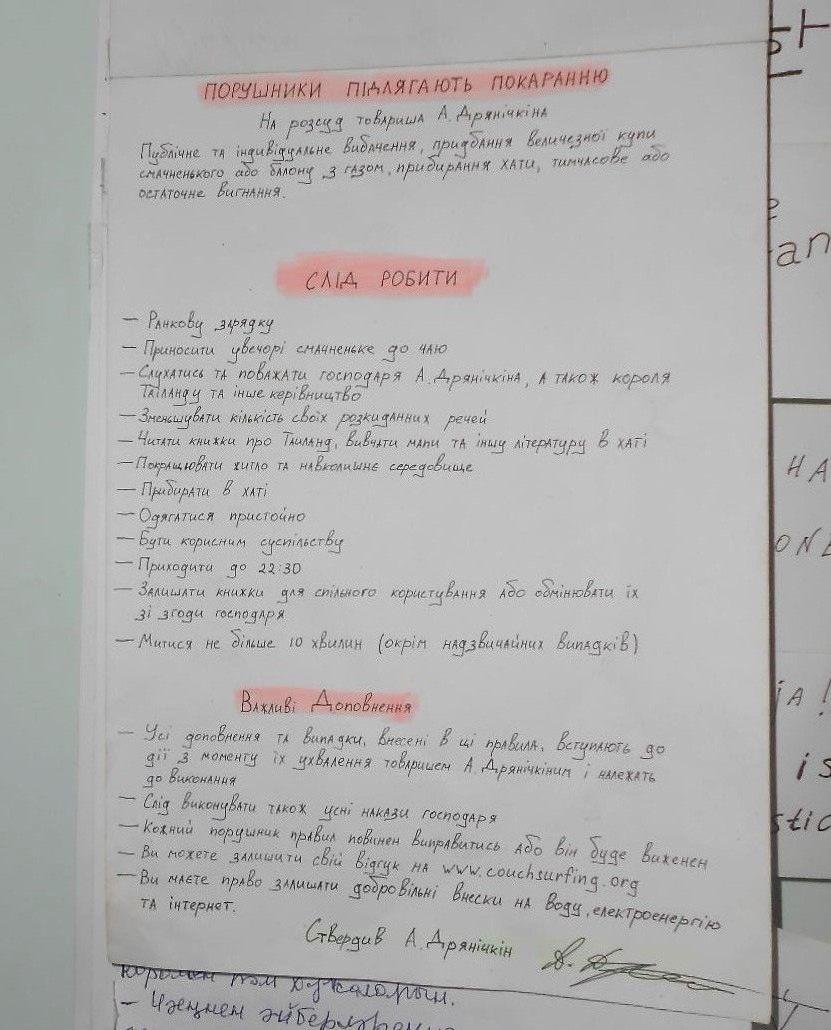 ПОРУШНИКИ ПІДЛЯГАЮТЬ ПОКАРАННЮ
На розсуд товариша А. Дрянічкіна
Публічне та індивідуальне вибачення, придбання величезної купи
смачненького або балону з газом, прибирання хати, тимчасове або
остаточне вигнання.
СЛІД РОБИТИ
— Ранкову зарядку
— Приносити увечорі смачненьке до чаю
— Слухатись та поважати господаря А. Дрянічкіна, а також короля
Таїланду та інше керівництво
— Зменьшувати кількість своїх розкиданних речей
— Читати книжки про Таиланд, вивчати мапи та іншу літературу в хаті
— Покращювати житло та навколишнє середовище
— Прибирати в хаті
— Одягатися пристойно
— Бути корисним суспільству
— Приходити до 22:30
— Залишати книжки для спільного користування або обмінювати їх
зі згоди господаря
— Митися не більше 10 хвилин (окрім надзвичайних випадків)
Важливі Доповнення
— Усі доповнення та випадки, внесені в ці правила, вступають до
дії з моменту їх ухвалення товаришем А. Дрянічкіним і належать
до виконання
— Слід виконувати також усні накази господаря
— Кожний порушник правил повинен виправитись або він буде виженен
— Ви можете залишити свій відгук на www.couchsurfing.org
— Ви маєте право залишати добровільні внески на воду, електроенергію
та інтернет.
Ствердив А. Дрянічкін
st
an
НА
ONE
ІА!
is
stic